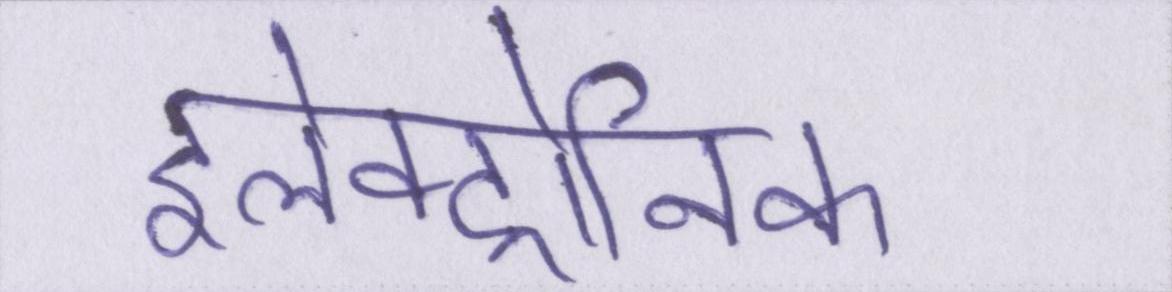 इलेक्ट्रोनिक